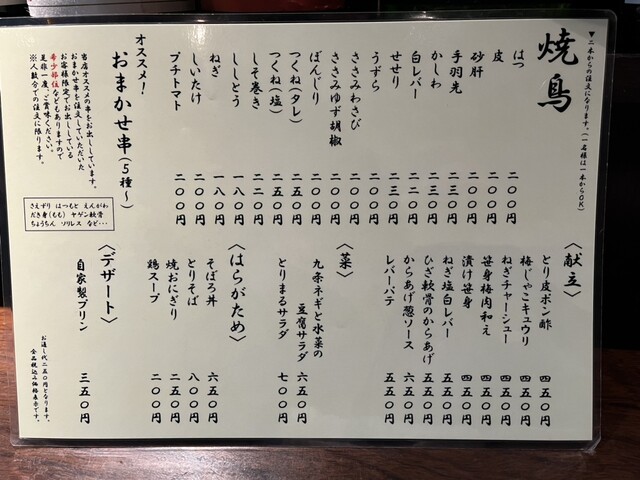 ▼二本からの注文になります。(一名様は一本からOK)
焼鳥
はつ 二〇〇円
皮 二〇〇円
砂肝 二〇〇円
手羽先 二三〇円
かしわ 二三〇円
白レバー 二二〇円
せせり 二三〇円
うずら 二〇〇円
ささみわさび 二〇〇円
ささみゆず胡椒 二〇〇円
ぼんじり 二〇〇円
つくね(タレ) 二五〇円
つくね(塩) 二五〇円
しそ巻き 二二〇円
ししとう 一八〇円
ねぎ 一八〇円
しいたけ 二〇〇円
プチトマト 二〇〇円
オススメ!
おまかせ串(5種〜)
当店オススメの串をお出ししています。
おまかせ串を注文していただいた
お客様限定でお出ししている
希少部位などもありますので
是非一度、ご賞味ください。
※人数分での注文に限ります。
さえずり はつもと えんがわ
だき身(もも) ヤゲン軟骨
ちょうちん ソリレス など…
〈献立〉
とり皮ポン酢 四五〇円
梅じゃこキュウリ 四五〇円
ねぎチャーシュー 四五〇円
笹身梅肉和え 四五〇円
漬け笹身 四五〇円
ねぎ塩白レバー 五五〇円
ひざ軟骨のからあげ 五五〇円
からあげ葱ソース 六五〇円
レバーパテ 五五〇円
〈菜〉
九条ネギと水菜の
豆腐サラダ 六五〇円
とりまるサラダ 七〇〇円
〈はらがため〉
そぼろ丼 六五〇円
とりそば 八〇〇円
焼おにぎり 二五〇円
鶏スープ 二〇〇円
〈デザート〉
自家製プリン 三五〇円
お通し代二五〇円となります。
全品税込み価格表示です。